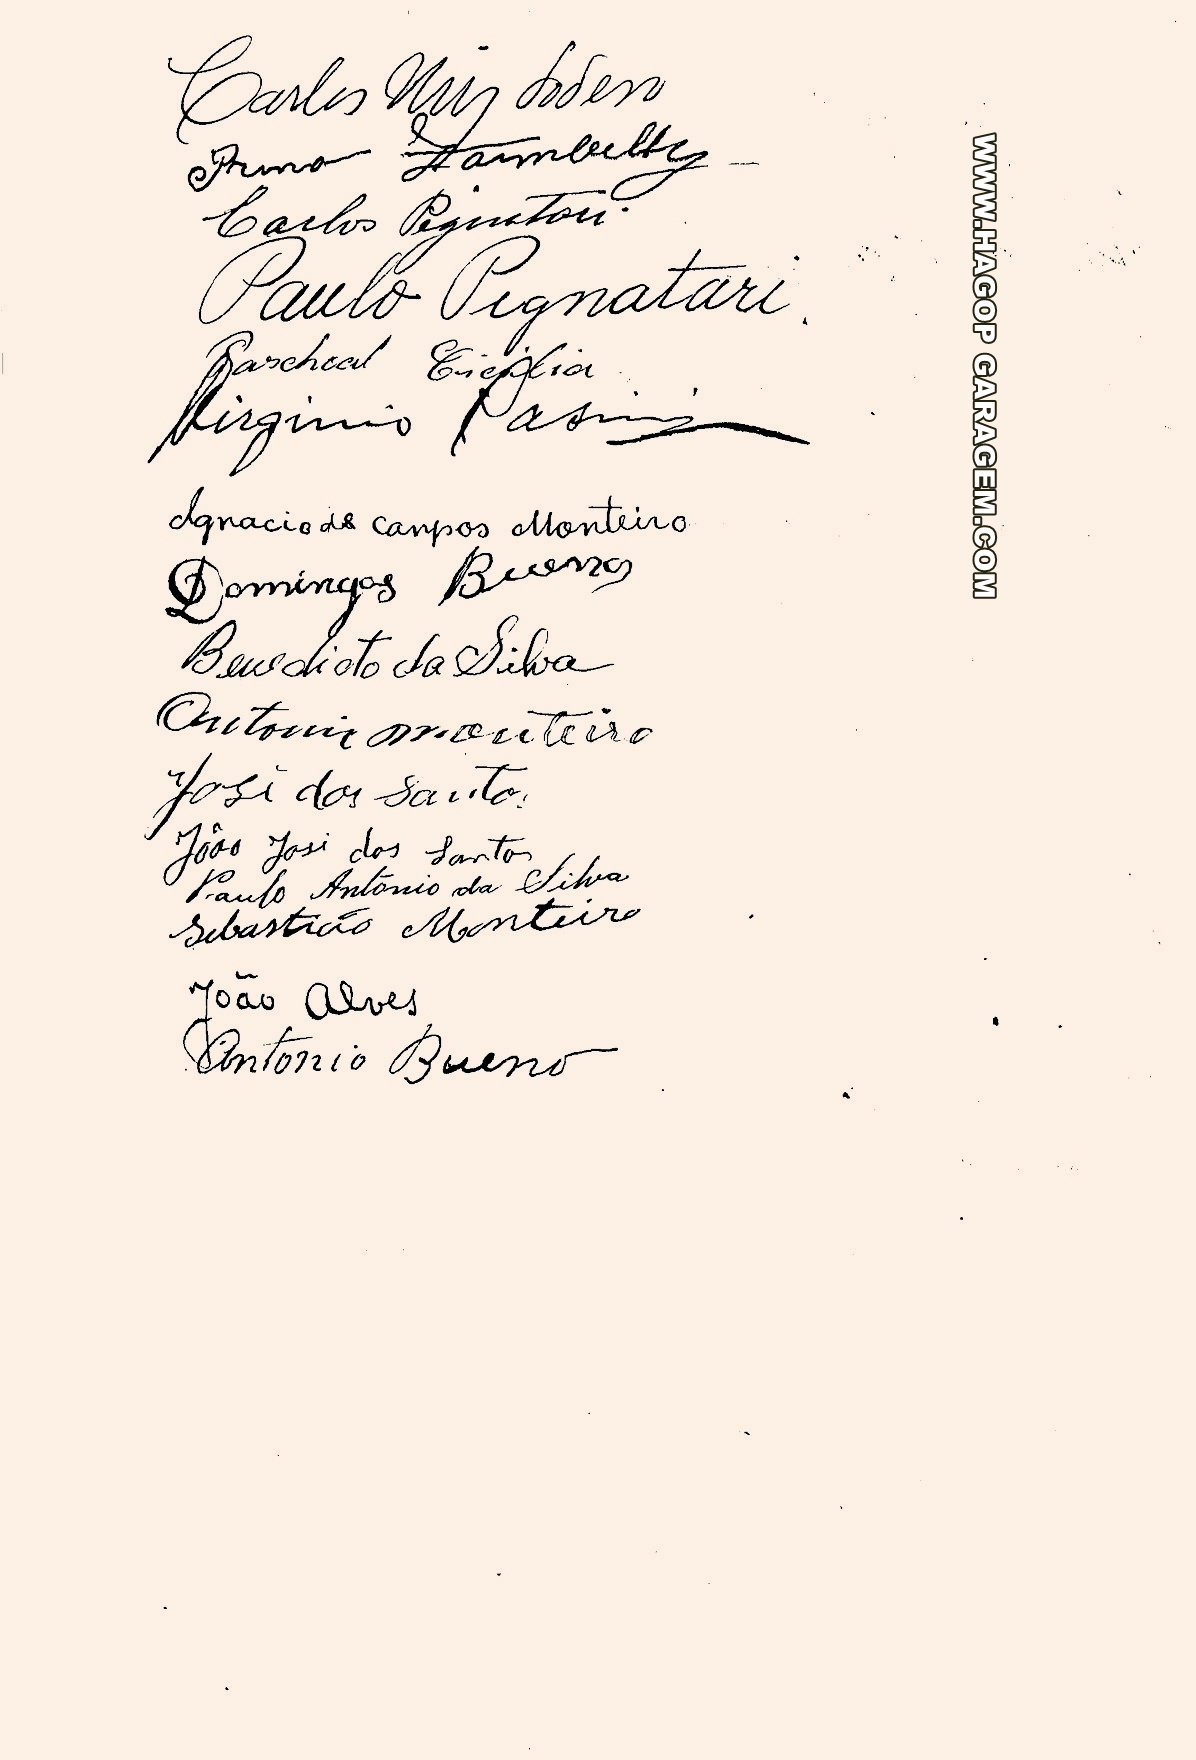 Carlos
Carlos Pignatari
Paulo Pignatari.
Paschoal Cicilia
Virginio
Ignacio de Campos Monteiro
Domingos Bueno
Benedicto da Silva
Antonio Monteiro
José dos Santos
João José dos Santos
Paulo Antonio da Silva
Sebastião Monteiro
João Alves
Antonio Bueno
WWW.HAGOP GARAGEM.COM